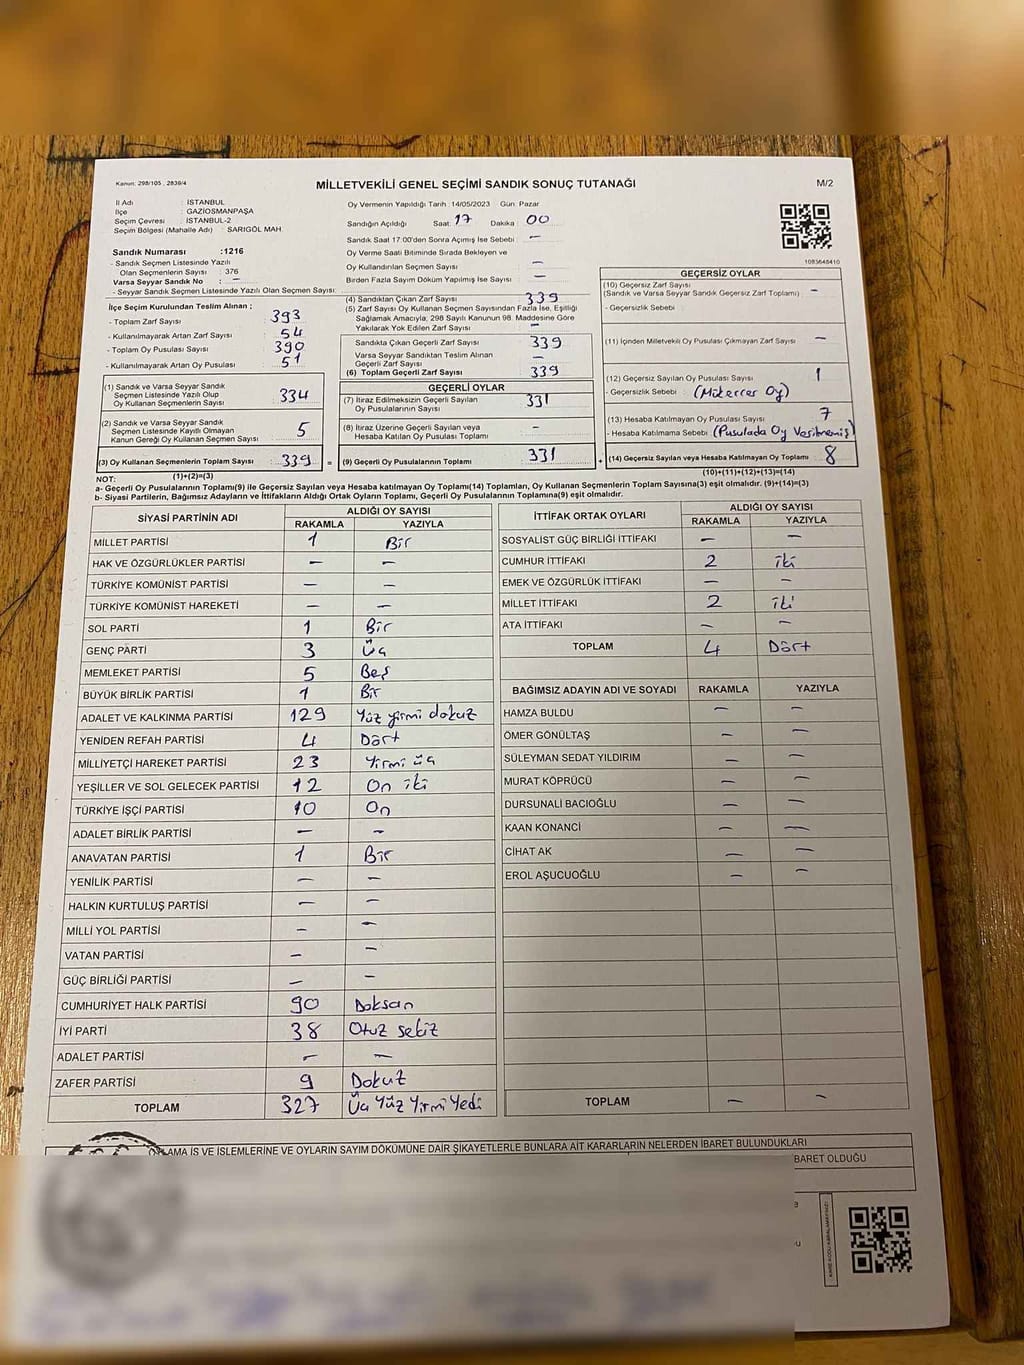 Kanun: 298/105 , 2839/4
MİLLETVEKİLİ GENEL SEÇİMİ SANDIK SONUÇ TUTANAĞI
M/2
İl Adı : İSTANBUL
İlçe : GAZİOSMANPAŞA
Seçim Çevresi : İSTANBUL-2
Seçim Bölgesi (Mahalle Adı) : SARIGÖL MAH.
Oy Vermenin Yapıldığı Tarih : 14/05/2023 Gün: Pazar
Sandığın Açıldığı Saat: 17 Dakika : 00
Sandık Saat 17:00'den Sonra Açımış İse Sebebi : —
Oy Verme Saati Bitiminde Sırada Bekleyen ve
Oy Kullandırılan Seçmen Sayısı —
Birden Fazla Sayım Döküm Yapılmış İse Sayısı : —
1083648410
Sandık Numarası :1216
- Sandık Seçmen Listesinde Yazılı
Olan Seçmenlerin Sayısı : 376
Varsa Seyyar Sandık No : —
- Seyyar Sandık Seçmen Listesinde Yazılı Olan Seçmen Sayısı:
İlçe Seçim Kurulundan Teslim Alınan ;
- Toplam Zarf Sayısı : 393
- Kullanılmayarak Artan Zarf Sayısı : 54
- Toplam Oy Pusulası Sayısı : 390
- Kullanılmayarak Artan Oy Pusulası : 51
(1) Sandık ve Varsa Seyyar Sandık
Seçmen Listesinde Yazılı Olup
Oy Kullanan Seçmenlerin Sayısı : 334
(2) Sandık ve Varsa Seyyar Sandık
Seçmen Listesinde Kayıtlı Olmayan
Kanun Gereği Oy Kullanan Seçmen Sayısı : 5
(3) Oy Kullanan Seçmenlerin Toplam Sayısı : 339 =
(1)+(2)=(3)
(4) Sandıktan Çıkan Zarf Sayısı 339
(5) Zarf Sayısı Oy Kullanan Seçmen Sayısından Fazla İse, Eşitliği
Sağlamak Amacıyla, 298 Sayılı Kanunun 98. Maddesine Göre
Yakılarak Yok Edilen Zarf Sayısı —
Sandıkta Çıkan Geçerli Zarf Sayısı : 339
Varsa Seyyar Sandıktan Teslim Alınan
Geçerli Zarf Sayısı —
(6) Toplam Geçerli Zarf Sayısı 339
GEÇERLİ OYLAR
(7) İtiraz Edilmeksizin Geçerli Sayılan
Oy Pusulalarının Sayısı : 331
(8) İtiraz Üzerine Geçerli Sayılan veya
Hesaba Katılan Oy Pusulası Toplamı : —
(9) Geçerli Oy Pusulalarının Toplamı : 331 +
GEÇERSİZ OYLAR
(10) Geçersiz Zarf Sayısı
(Sandık ve Varsa Seyyar Sandık Geçersiz Zarf Toplamı) : —
- Geçersizlik Sebebi :
(11) İçinden Milletvekili Oy Pusulası Çıkmayan Zarf Sayısı : —
(12) Geçersiz Sayılan Oy Pusulası Sayısı : 1
- Geçersizlik Sebebi : (Mükerrer Oy)
(13) Hesaba Katılmayan Oy Pusulası Sayısı : 7
- Hesaba Katılmama Sebebi : (Pusulada Oy Verilmemiş)
(14) Geçersiz Sayılan veya Hesaba Katılmayan Oy Toplamı : 8
(10)+(11)+(12)+(13)=(14)
NOT:
a- Geçerli Oy Pusulalarının Toplamı(9) ile Geçersiz Sayılan veya Hesaba katılmayan Oy Toplamı(14) Toplamları, Oy Kullanan Seçmenlerin Toplam Sayısına(3) eşit olmalıdır. (9)+(14)=(3)
b- Siyasi Partilerin, Bağımsız Adayların ve İttifakların Aldığı Ortak Oyların Toplamı, Geçerli Oy Pusulalarının Toplamına(9) eşit olmalıdır.
SİYASİ PARTİNİN ADI ALDIĞI OY SAYISI
RAKAMLA YAZIYLA
MİLLET PARTİSİ 1 Bir
HAK VE ÖZGÜRLÜKLER PARTİSİ — —
TÜRKİYE KOMÜNİST PARTİSİ — —
TÜRKİYE KOMÜNİST HAREKETİ — —
SOL PARTİ 1 Bir
GENÇ PARTİ 3 Üç
MEMLEKET PARTİSİ 5 Beş
BÜYÜK BİRLİK PARTİSİ 1 Bir
ADALET VE KALKINMA PARTİSİ 129 Yüz yirmi dokuz
YENİDEN REFAH PARTİSİ 4 Dört
MİLLİYETÇİ HAREKET PARTİSİ 23 Yirmi üç
YEŞİLLER VE SOL GELECEK PARTİSİ 12 On iki
TÜRKİYE İŞÇİ PARTİSİ 10 On
ADALET BİRLİK PARTİSİ — —
ANAVATAN PARTİSİ 1 Bir
YENİLİK PARTİSİ — —
HALKIN KURTULUŞ PARTİSİ — —
MİLLİ YOL PARTİSİ — —
VATAN PARTİSİ — —
GÜÇ BİRLİĞİ PARTİSİ — —
CUMHURİYET HALK PARTİSİ 90 Doksan
İYİ PARTİ 38 Otuz sekiz
ADALET PARTİSİ — —
ZAFER PARTİSİ 9 Dokuz
TOPLAM 327 Üç Yüz Yirmi Yedi
İTTİFAK ORTAK OYLARI ALDIĞI OY SAYISI
RAKAMLA YAZIYLA
SOSYALİST GÜÇ BİRLİĞİ İTTİFAKI — —
CUMHUR İTTİFAKI 2 iki
EMEK VE ÖZGÜRLÜK İTTİFAKI — —
MİLLET İTTİFAKI 2 iki
ATA İTTİFAKI — —
TOPLAM 4 Dört
BAĞIMSIZ ADAYIN ADI VE SOYADI RAKAMLA YAZIYLA
HAMZA BULDU — —
ÖMER GÖNÜLTAŞ — —
SÜLEYMAN SEDAT YILDIRIM — —
MURAT KÖPRÜCÜ — —
DURSUNALİ BACIOĞLU — —
KAAN KONANCİ — —
CİHAT AK — —
EROL AŞUCUOĞLU — —
TOPLAM — —
LAMA İŞ VE İŞLEMLERİNE VE OYLARIN SAYIM DÖKÜMÜNE DAİR ŞİKAYETLERLE BUNLARA AİT KARARLARIN NELERDEN İBARET BULUNDUKLARI
BARET OLDUĞU